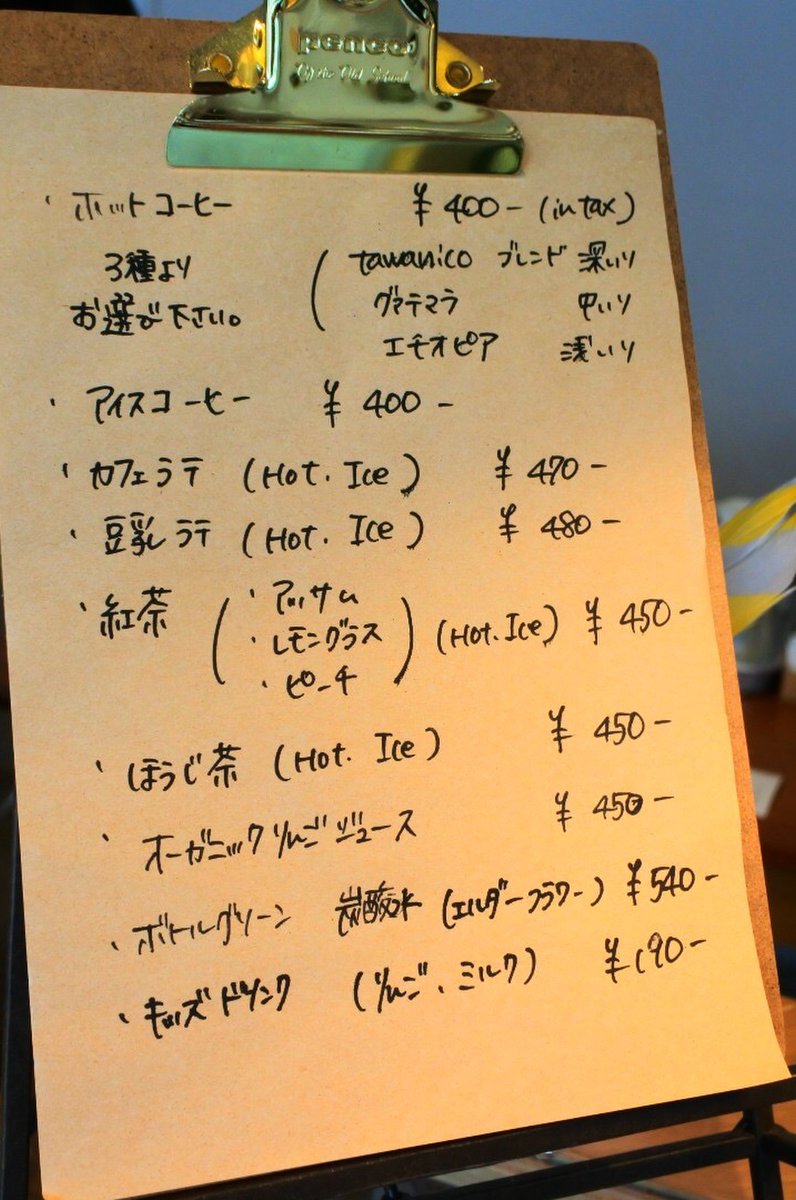 penco
Of the Old School
・ホットコーヒー ¥400- (in tax)
3種より
お選び下さい。
( tawanico ブレンド 深いり
グァテマラ 中いり
エチオピア 浅いり
・アイスコーヒー ¥400-
・カフェラテ (Hot. Ice) ¥470-
・豆乳ラテ (Hot. Ice) ¥480-
・紅茶 ( ・アッサム
・レモングラス
・ピーチ ) (Hot. Ice) ¥450-
・ほうじ茶 (Hot. Ice) ¥450-
・オーガニックりんごジュース ¥450-
・ボトルグリーン 炭酸水 (エルダーフラワー) ¥540-
・キッズドリンク (りんご、ミルク) ¥190-